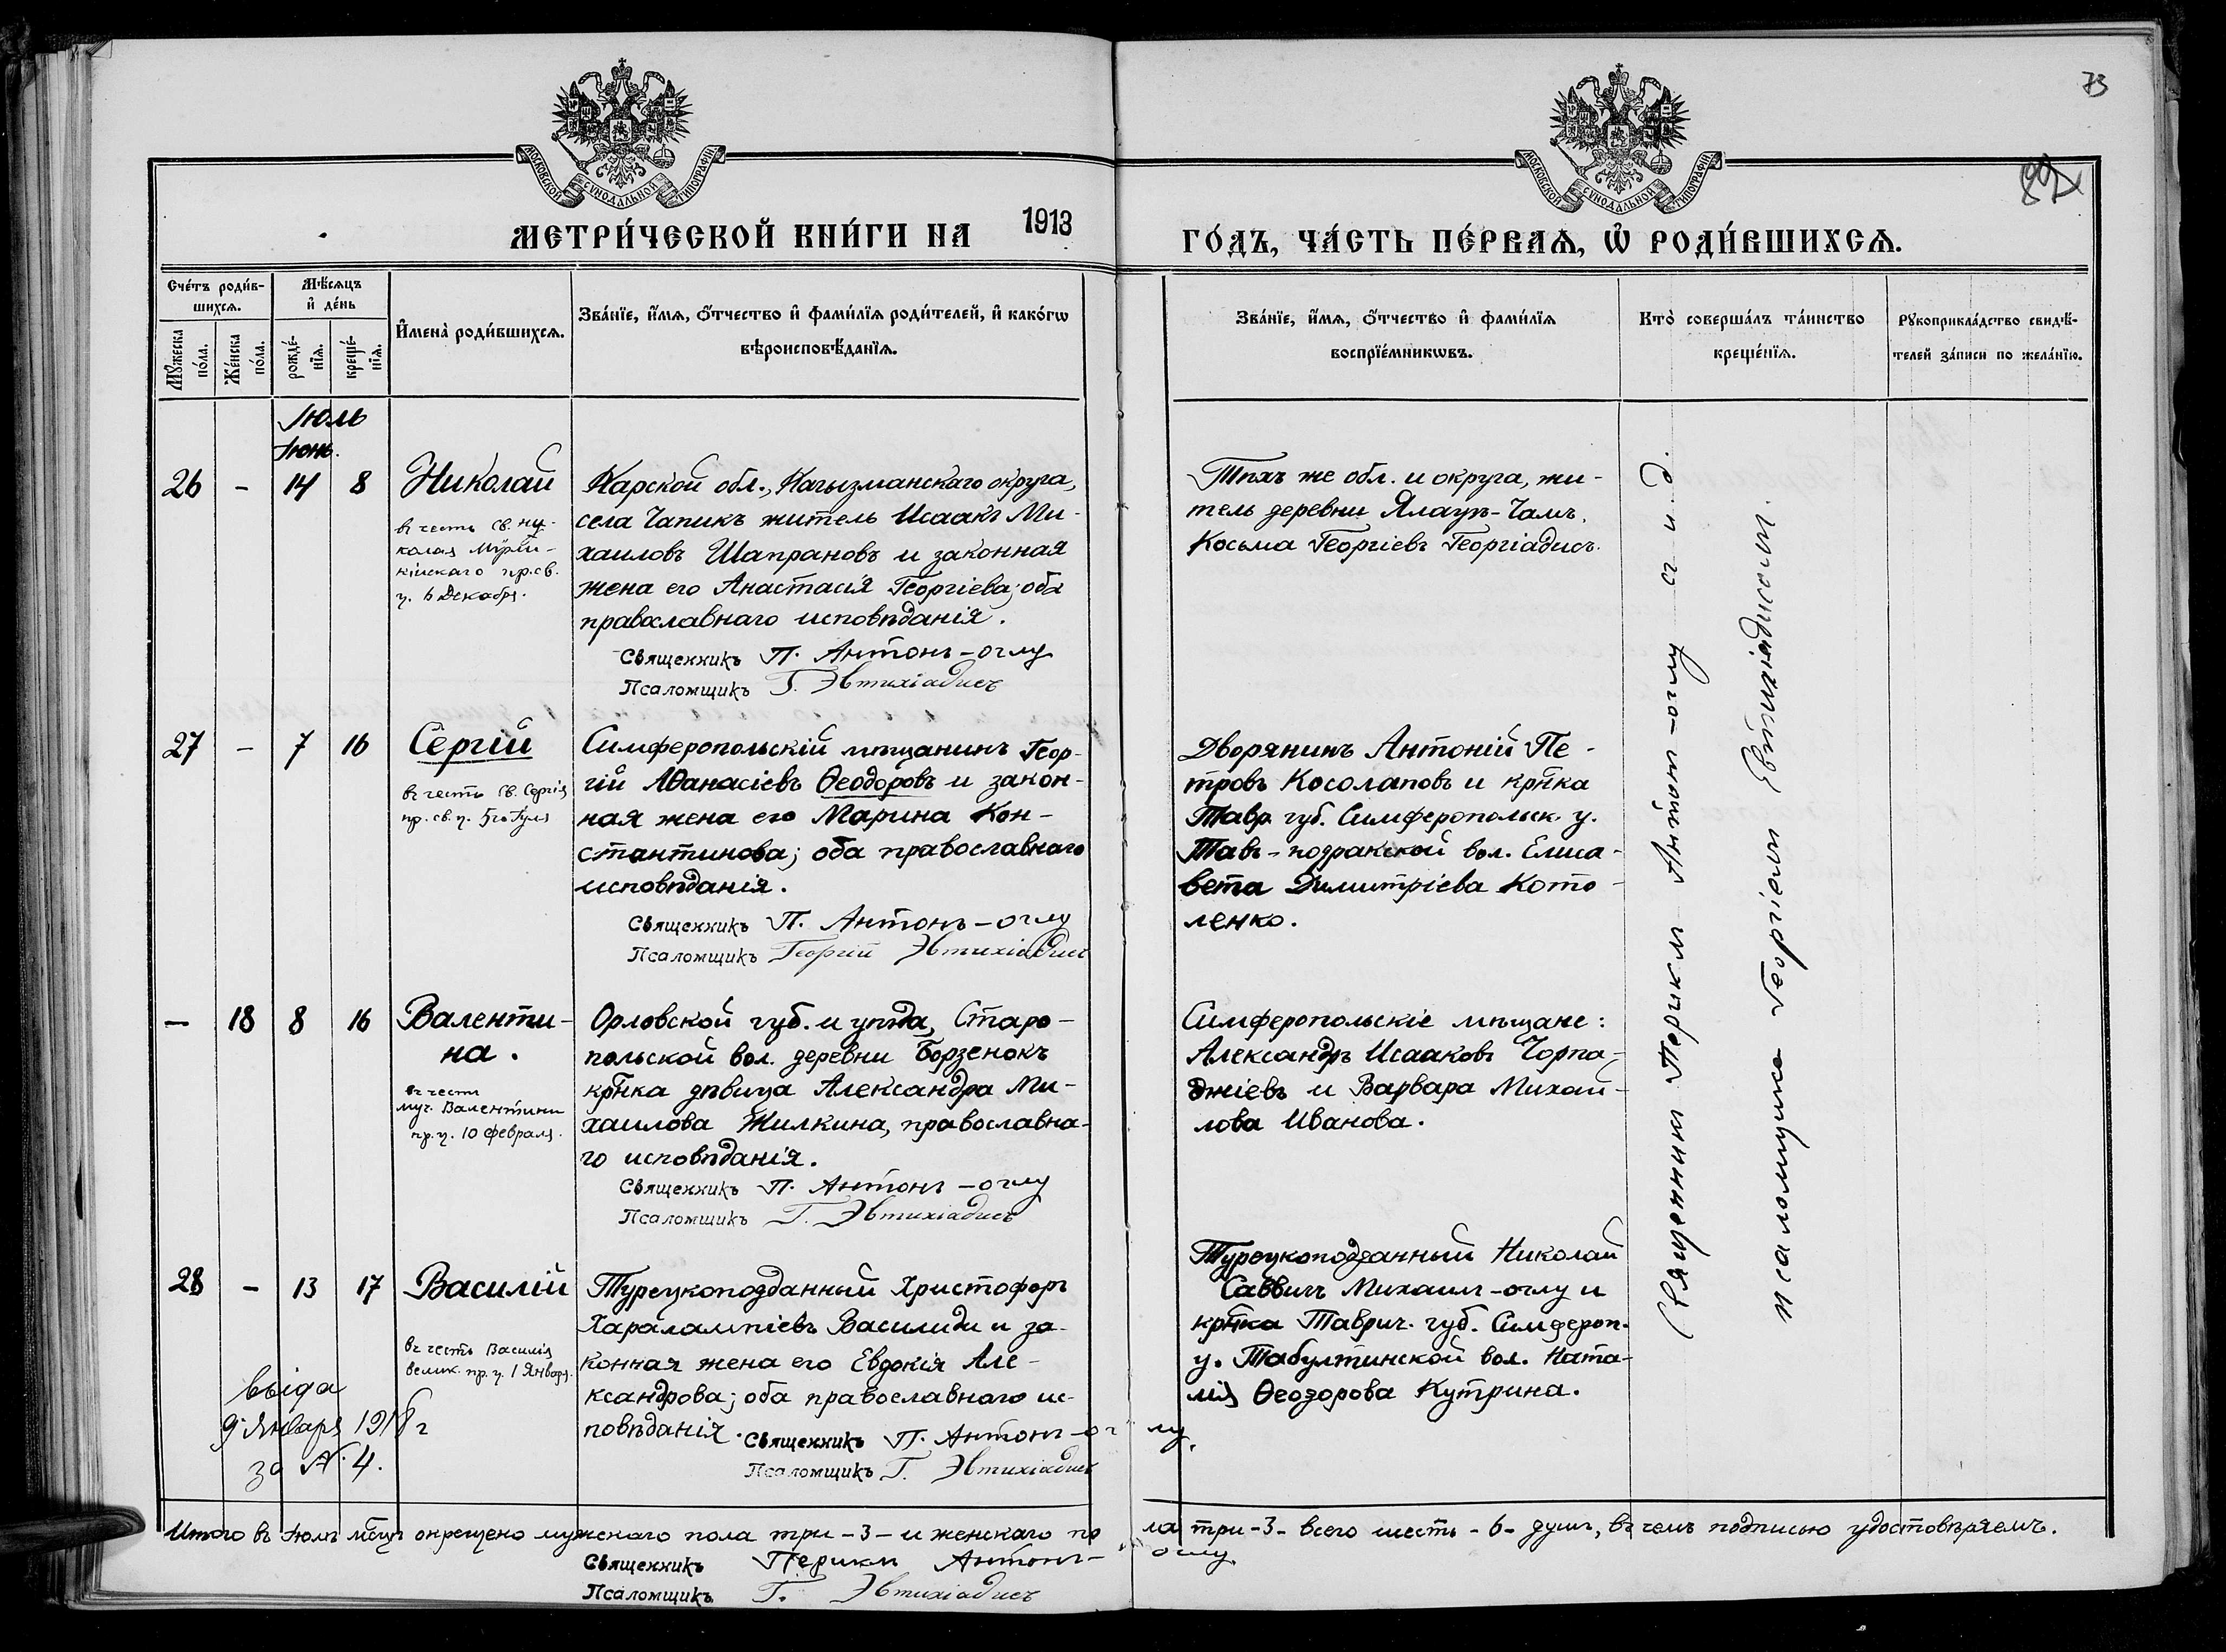 73
МОСКОВСКОЙ СѴНОДАЛЬНОЙ ТИПОГРАФІИ
МОСКОВСКОЙ СѴНОДАЛЬНОЙ ТИПОГРАФІИ
МЕТРИ́ЧЕСКОЙ КНИ́ГИ НА 1913 ГО́ДЪ, ЧА́СТЬ ПЕ́РВАѦ, Ѡ҆ РОДИ́ВШИХСѦ.
Сче́тъ роди́в-
шихсѧ.
Мꙋжеска по́ла.
Же́нска по́ла.
Мѣ́сѧцъ
и҆ де́нь
рожде́-
нїѧ.
креще́-
нїѧ.
И҆мена̀ роди́вшихсѧ.
Зва́нїе, и҆́мѧ, ѻ҆́тчество и҆ фами́лїѧ роди́телей, и҆ како́гѡ
вѣроисповѣ́данїѧ.
Зва́нїе, и҆́мѧ, ѻ҆́тчество и҆ фами́лїѧ
воспрїе́мникѡвъ.
Кто̀ соверша́лъ та́инство
креще́нїѧ.
Рꙋкоприкла́дство свидѣ́-
телей за́писи по жела́нїю.
Іюль
Іюнь.
26 - 14 8 Николай
въ честь св. Ни-
колая Мүрли-
кійскаго пр.св.
ц. 6 Декабря.
Карской обл., Кагызманскаго округа,
села Чапикъ житель Исаакъ Ми-
хаиловъ Шапрановъ и законная
жена его Анастасія Георгіева; оба
православнаго исповѣданія.
Священникъ П. Антонъ-оглу
Псаломщикъ Г. Эвтихіадисъ
Тѣхъ же обл. и округа, жи-
тель деревни Ялаузъ-Чамъ,
Косьма Георгіевъ Георгіадисъ.
27 - 7 16 Сергій
въ честь св. Сергія
пр. св. ц. 5го Іуля
Симферопольскій мѣщанинъ Геор-
гій Аѳанасіевъ Ѳеодоровъ и закон-
ная жена его Марина Кон-
стантинова; оба православнаго
исповѣданія.
Священникъ П. Антонъ-оглу
Псаломщикъ Георгій Эвтихіадисъ
Дворянинъ Антоній Пе-
тровъ Косолаповъ и кр҃нка
Тавр. губ. Симферопольск. у.
вол. Елиса-
вета Димитріева Кото-
ленко.
- 18 8 16 Валенти-
на.
въ честь
муч. Валентины
пр. ц. 10 февраля.
Орловской губ. и уѣзда, Старо-
польской вол. деревни Борзенокъ
кр҃нка дѣвица Александра Ми-
хаилова Жилкина, православна-
го исповѣданія.
Священникъ П. Антонъ-оглу
Псаломщикъ Г. Эвтихіадисъ
Симферопольскіе мѣщане:
Александръ Исааковъ Чорпа-
джіевъ и Варвара Михай-
лова Иванова.
28 - 13 17 Василій
въ честь Василія
велик. пр. ц. 1 Января.
Турецкоподданный Христофоръ
Харалампіевъ Василиди и за-
конная жена его Евдокія Але-
ксандрова; оба православнаго ис-
повѣданія.
Священникъ П. Антонъ-оглу.
Псаломщикъ Г. Эвтихіадисъ
Турецкоподданный Николай
Саввичъ Михаилъ-оглу и
кр҃нка Таврич. губ. Симфероп.
у. Табултинской вол. Ната-
лія Ѳеодорова Кутрина.
9 Января 1918 г
за №. 4.
Священникъ Периклъ Антонъ-оглу съ и. д.
псаломщика Георгіемъ Евтихіадисомъ.
Итого въ Іюлѣ мѣсяцѣ окрещено мужскаго пола три-3-и женскаго пола три-3- всего шесть-6-душъ, въ чемъ подписью удостовѣряемъ.
Священникъ Периклъ Антонъ-оглу
Псаломщикъ Г. Эвтихіадисъ